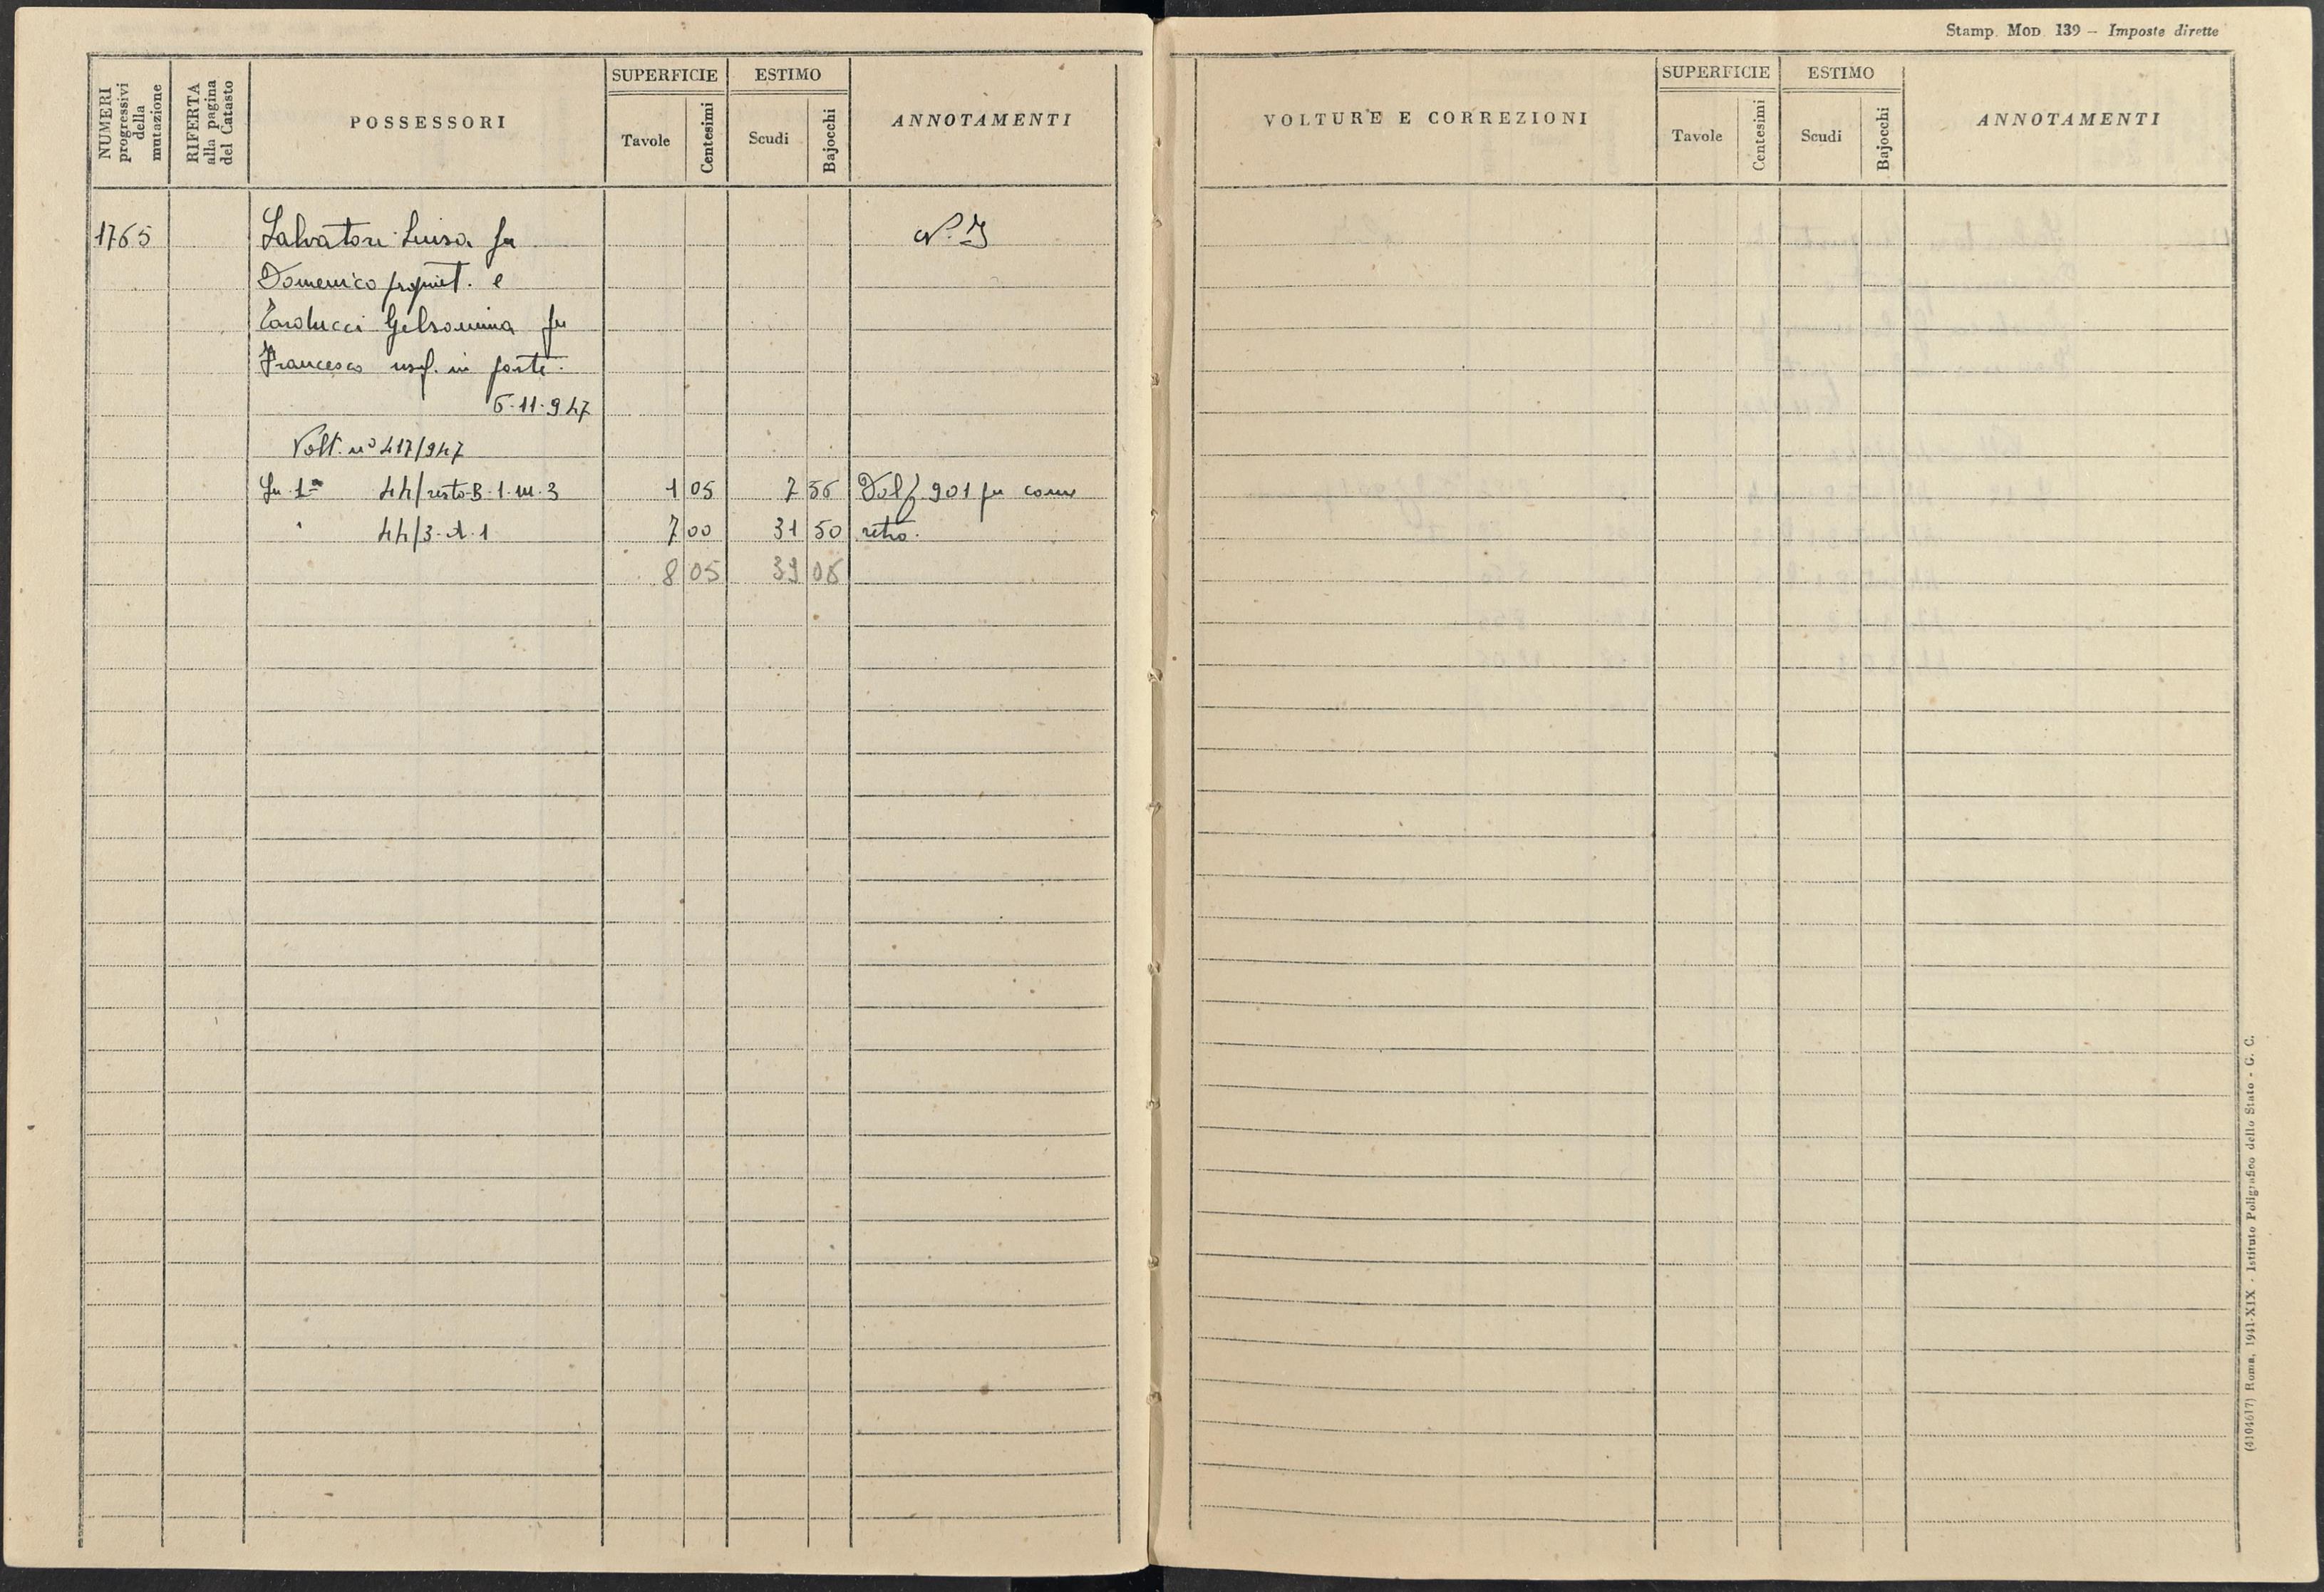 Stamp. Mod. 139 – Imposte dirette
NUMERI progressivi della mutazione
RIFERTA alla pagina del Catasto
POSSESSORI
SUPERFICIE
Tavole
Centesimi
ESTIMO
Scudi
Bajocchi
ANNOTAMENTI
1765 Salvatori Luisa fu N. I
Domenico propriet. e
Tarducci Gelsomina fu
Francesco usuf. in parte.
6-11-947
Volt. n° 417/947
Su 1ª 44/resto-B-1-m-3 1 05 7 56 Dal f 901 fu come
" 44/3-A-1 7 00 31 50 retro.
8 05 39 06
VOLTURE E CORREZIONI
SUPERFICIE
Tavole
Centesimi
ESTIMO
Scudi
Bajocchi
ANNOTAMENTI
(4104617) Roma, 1941-XIX - Istituto Poligrafico dello Stato - G. C.